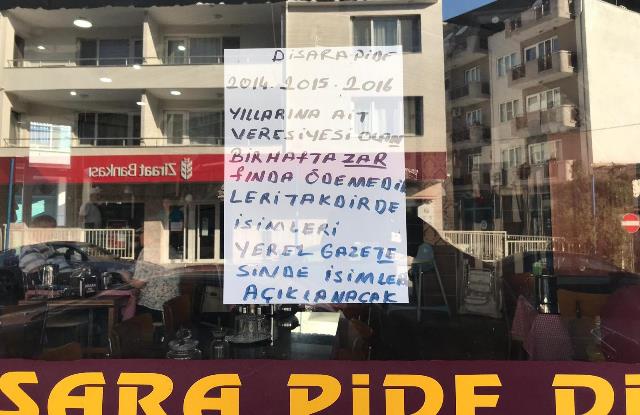 DİSARA PİDE
2014.2015.2016
YILLARINA AİT
VERESİYESİ OLAN
BİR HAFTA ZAR
FINDA ÖDEMEDİK
LERİ TAKDİRDE
İSİMLERİ
YEREL GAZETE
SİNDE İSİMLER
AÇIKLANACAK
Ziraat Bankası
SARA PİDE Dİ